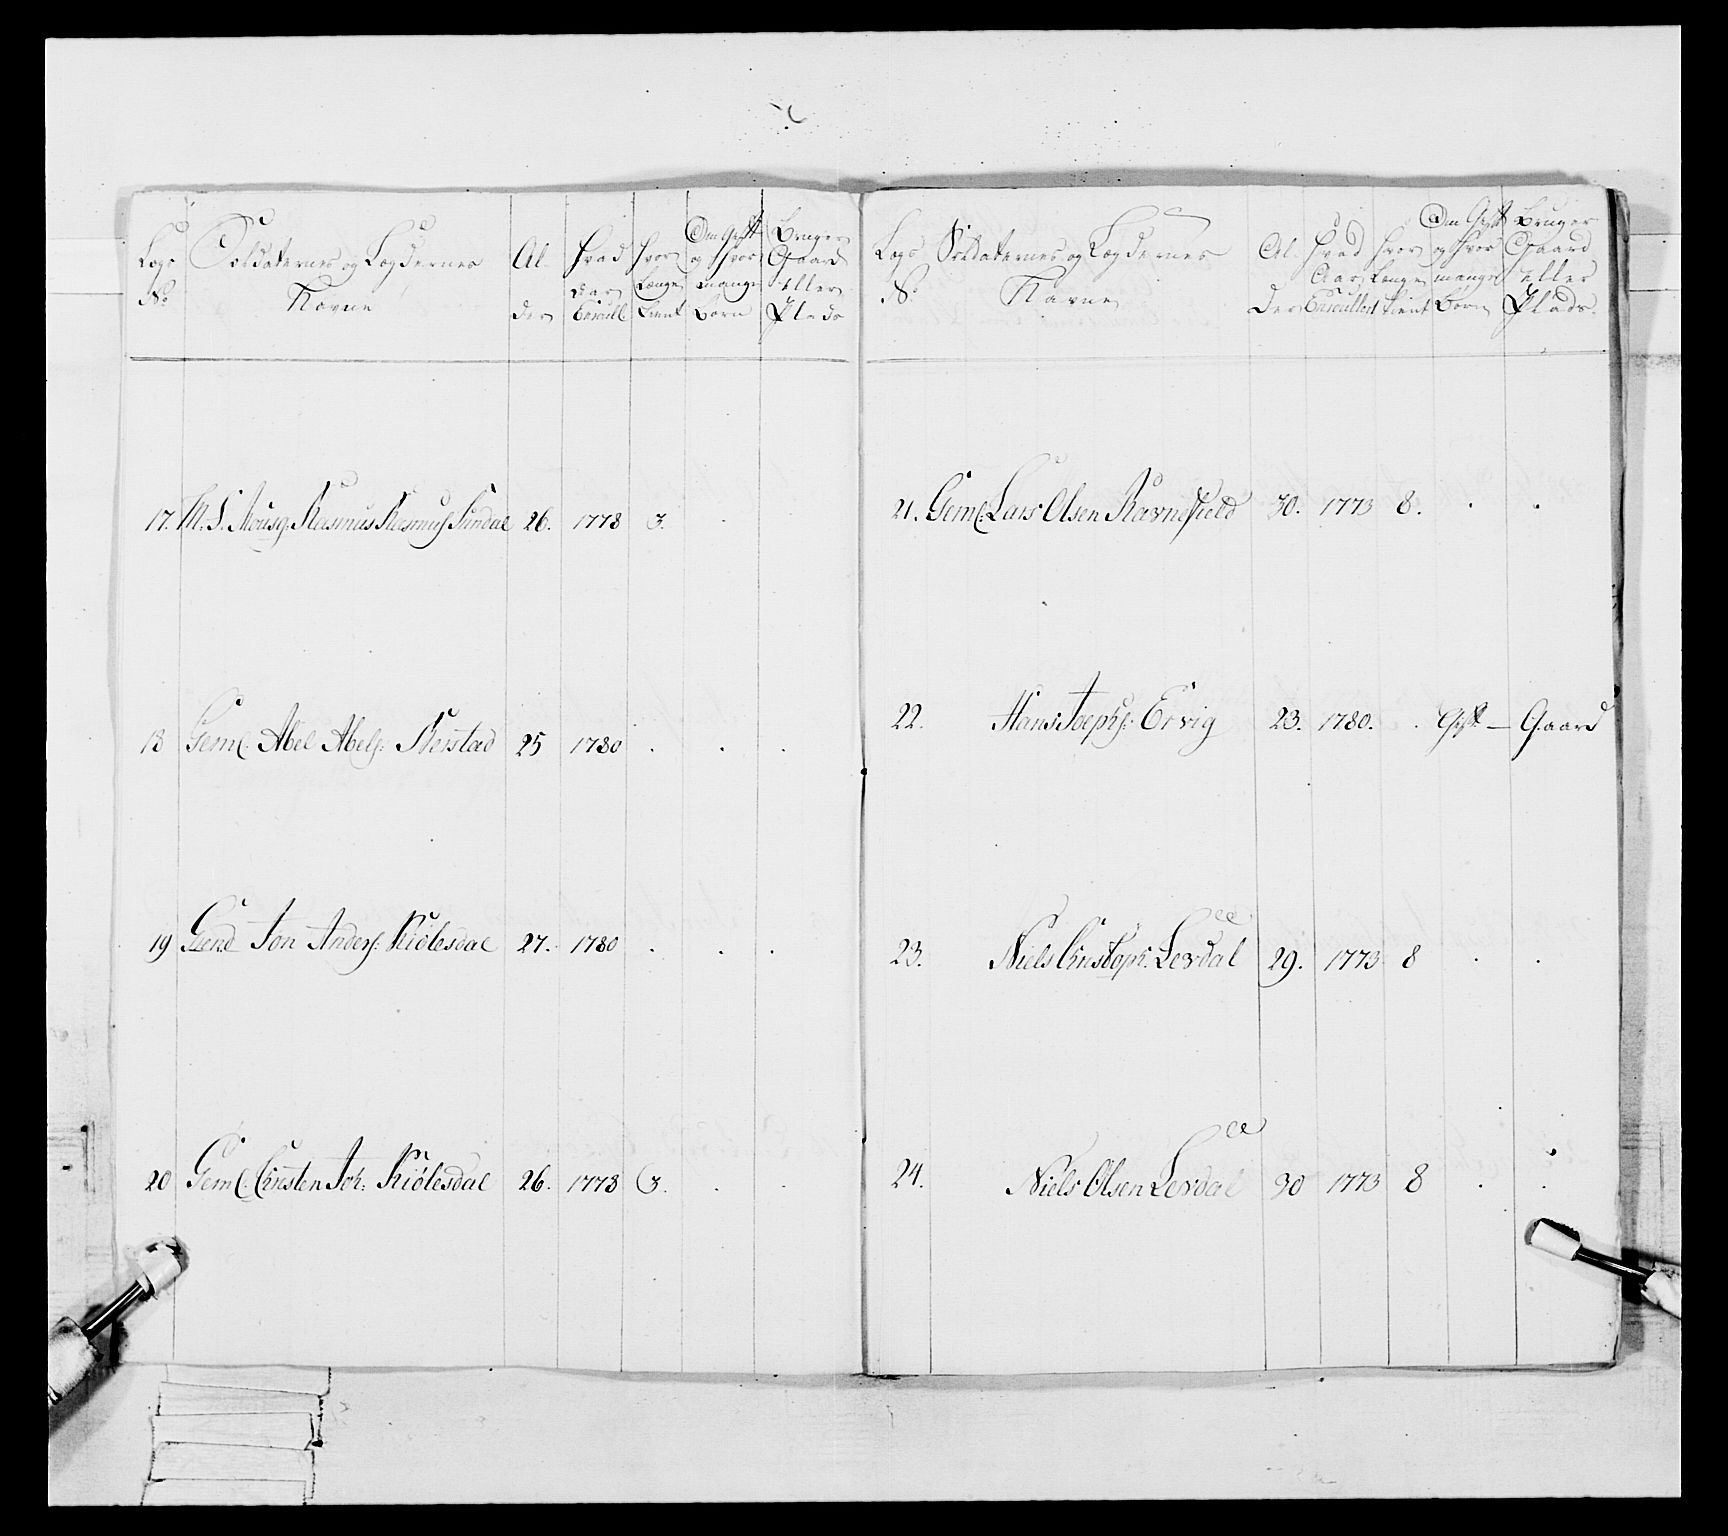 Logs No Soldaternes og Lægdernes Navne Al der Hvad Aar Enroull Hvor Længe tient Om Gift og Hvor mange Børn Bruger Gaard eller Plads
17. Rasmus Rasmus Sundal 26. 1778 3.
18 Geml. Abel Abels: 25 1780 . . .
19 Giend Jon Anders: Kiölesdal 27. 1780 . . .
20 Geml. Christen Joh: Kiölesdal 26. 1778 3. . .
Logs No Soldaternes og Lægdernes Navne Al der Hvad Aar Enroullert Hvor Længe tient Om Gift og Hvor mange Børn Bruger Gaard eller Plads.
21. Geml. Lars Olsen Ravnefield 30. 1773 8. . .
22. Hans Joephs: Ervig 23. 1780. . Gift — Gaard
23. Niels Christoph: Levdal 29. 1773 8 . .
24. Niels Olsen Levdal 30 1773 8 . .